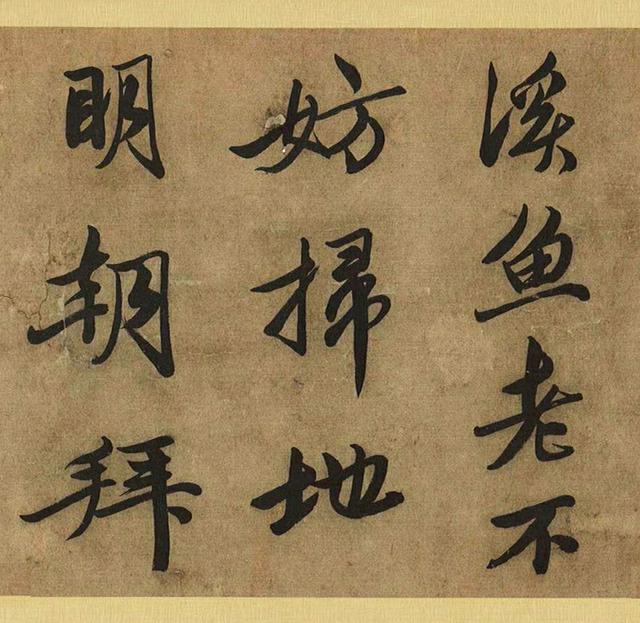 溪鱼老不
妨掃地
明朝拜